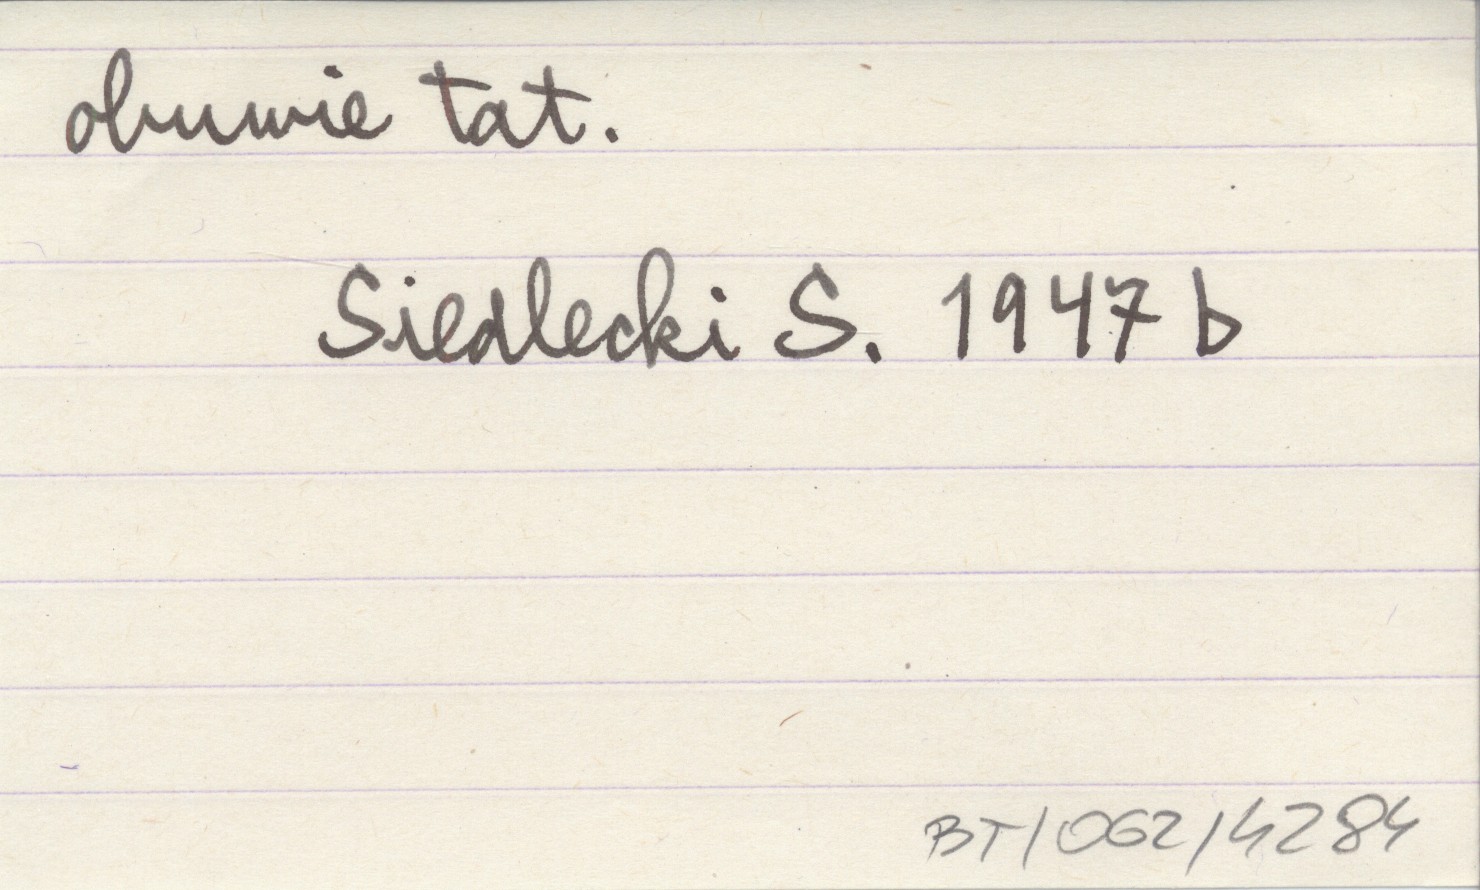 obuwie tat.
Siedlecki S. 1947 b
BT/062/4284